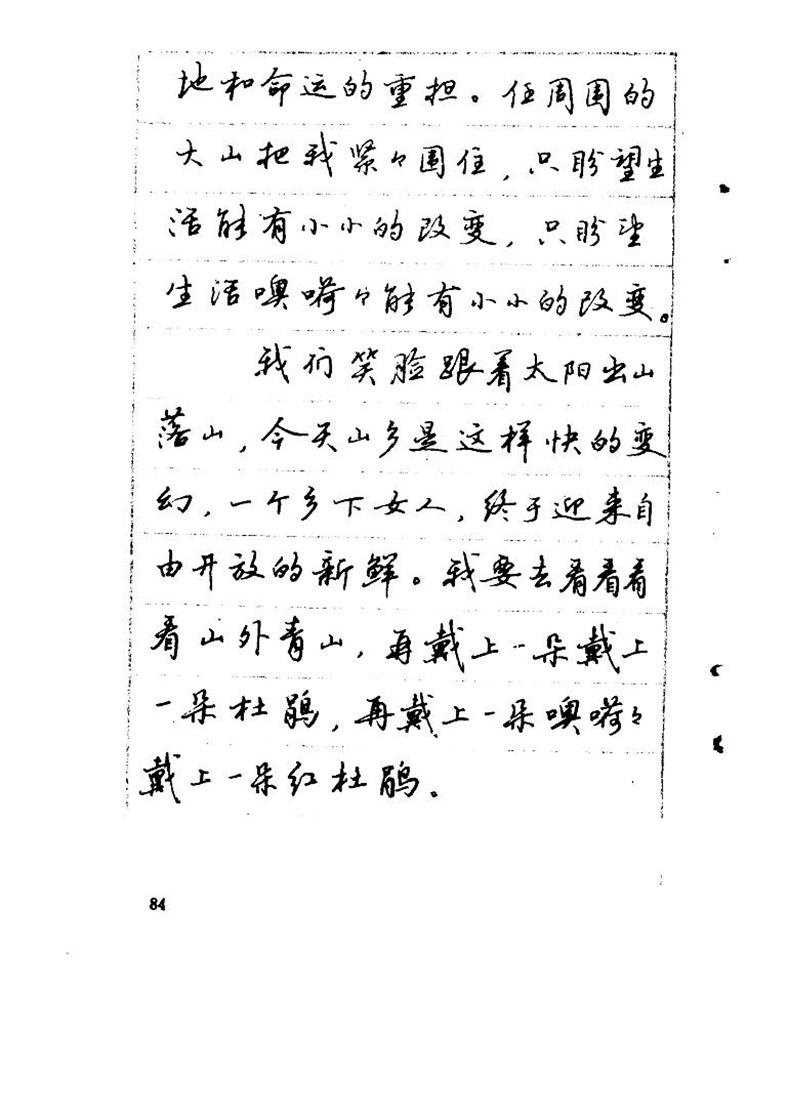 地和命运的重担。任周围的
大山把我紧々围住，只盼望生
活能有小小的改变，只盼望
生活噢嗬々能有小小的改变。
我们笑脸跟着太阳出山
落山，今天山乡是这样快的变
幻，一个乡下女人，终于迎来自
由开放的新鲜。我要去看看看
看山外青山，再戴上一朵戴上
一朵杜鹃，再戴上一朵噢嗬々
戴上一朵红杜鹃。
84